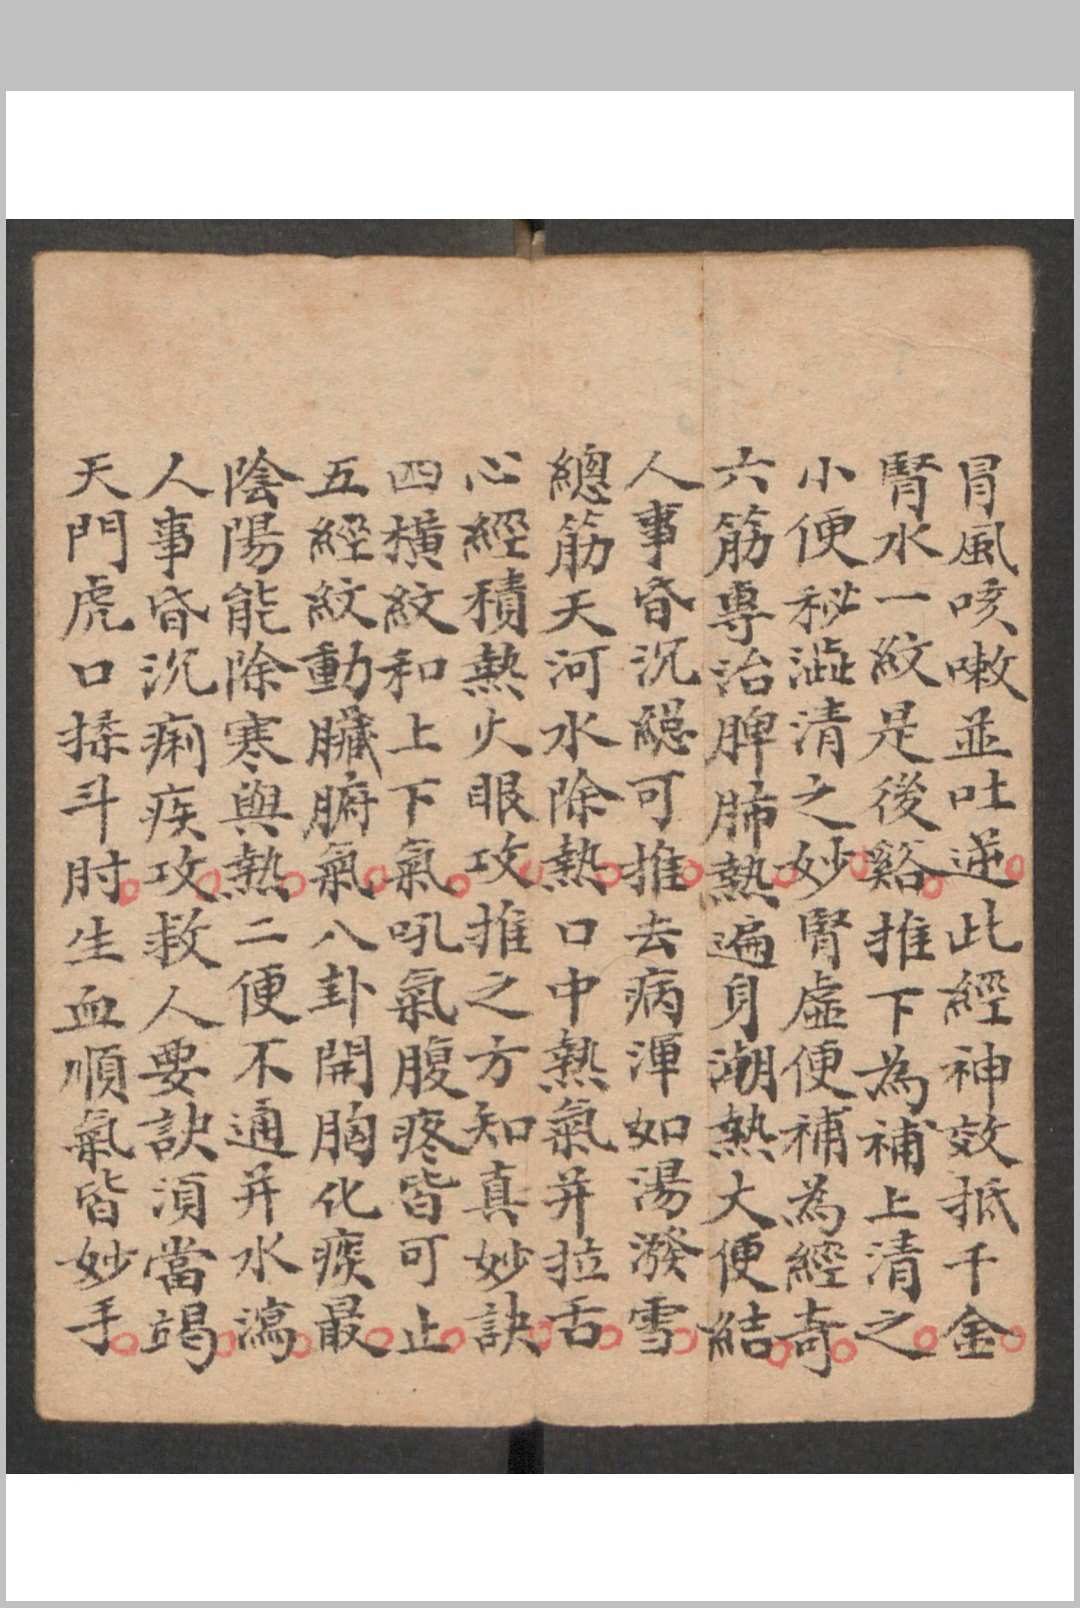 冐風咳嗽並吐逆此經神效抵千金
腎水一紋是後谿推下為補上清之
小便秘澁清之妙腎虛便補為經奇
六筋專治脾肺熱遍身潮熱大便結
人事昏沉總可推去病渾如湯潑雪
總筋天河水除熱口中熱氣并拉舌
心經積熱火眼攻推之方知真妙訣
四橫紋和上下氣吼氣腹疼皆可止
五經紋動臟腑氣八卦開胸化痰最
陰陽能除寒與熱二便不通并水瀉
人事昏沉痢疾攻救人要訣須當竭
天門虎口揉斗肘生血順氣皆妙手